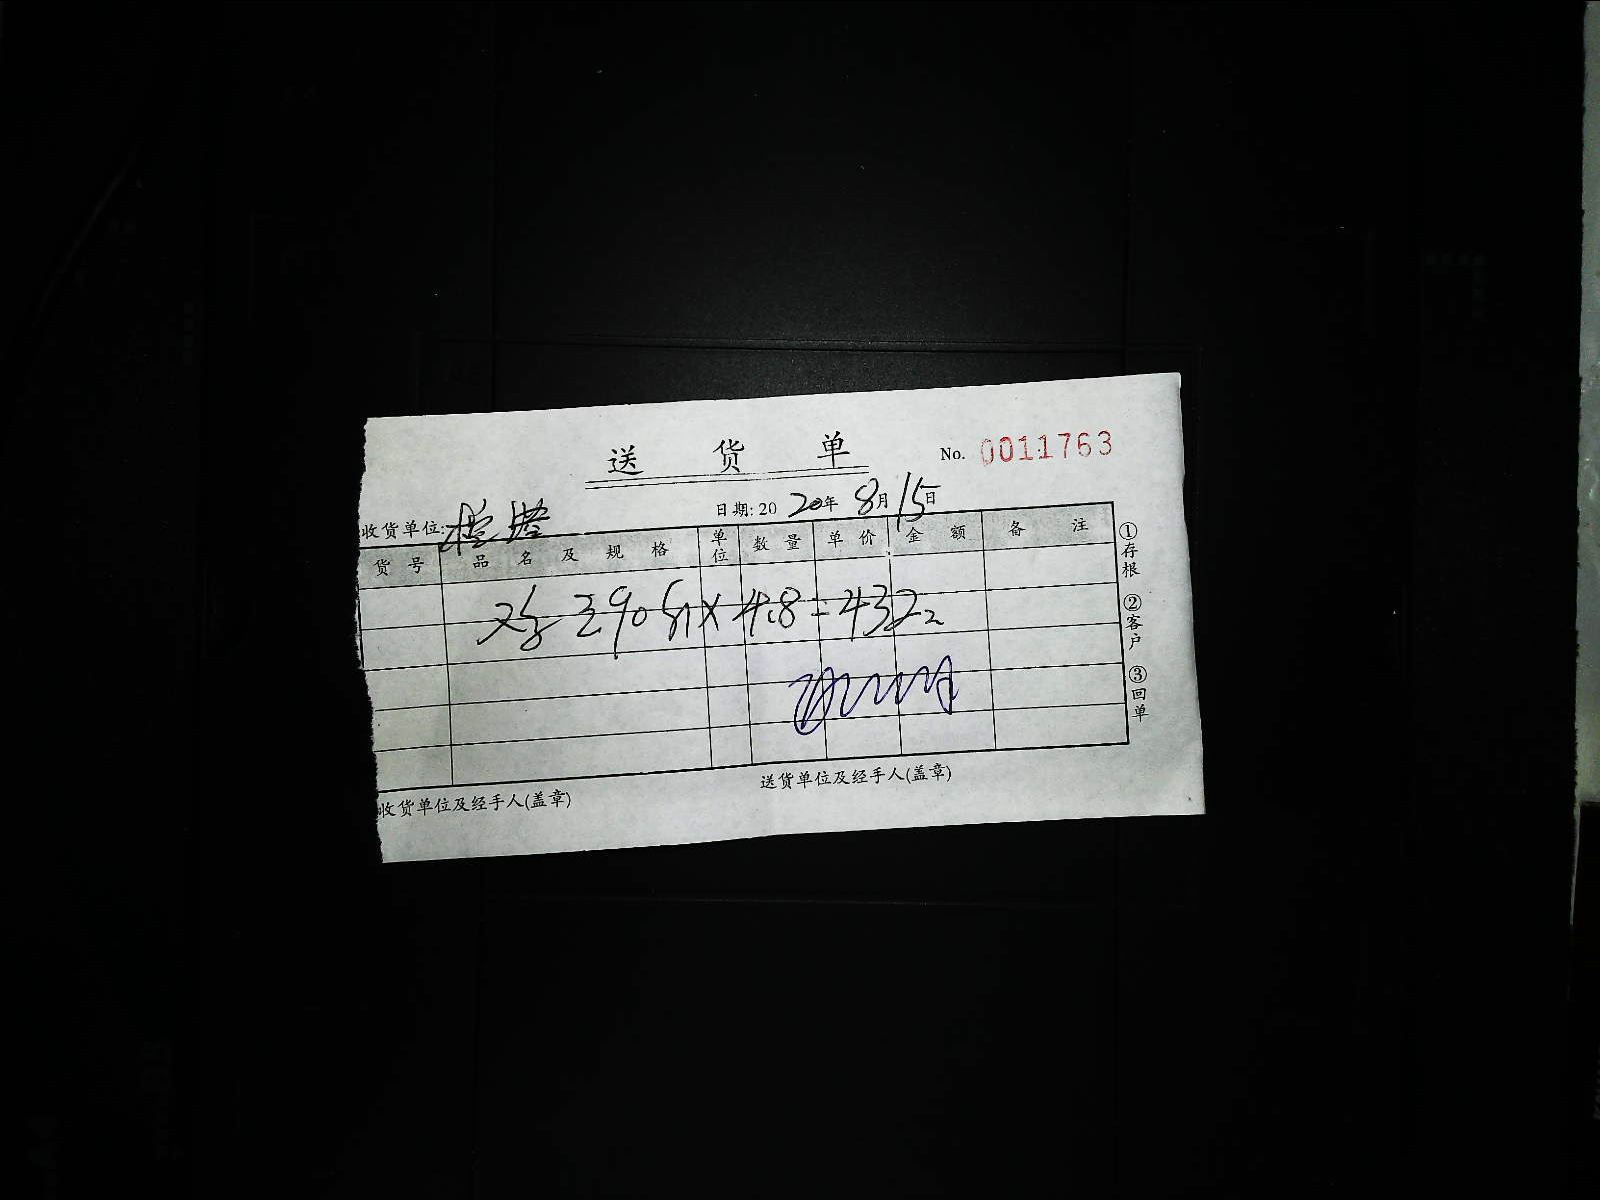 送 货 单
No. 0011763
日期: 20 20年 8月 15日
收货单位:
货 号 品 名 及 规 格 单位 数 量 单 价 金 额 备 注
鸡蛋90斤×4.8=432
①存根 ②客户 ③回单
收货单位及经手人(盖章) 送货单位及经手人(盖章)